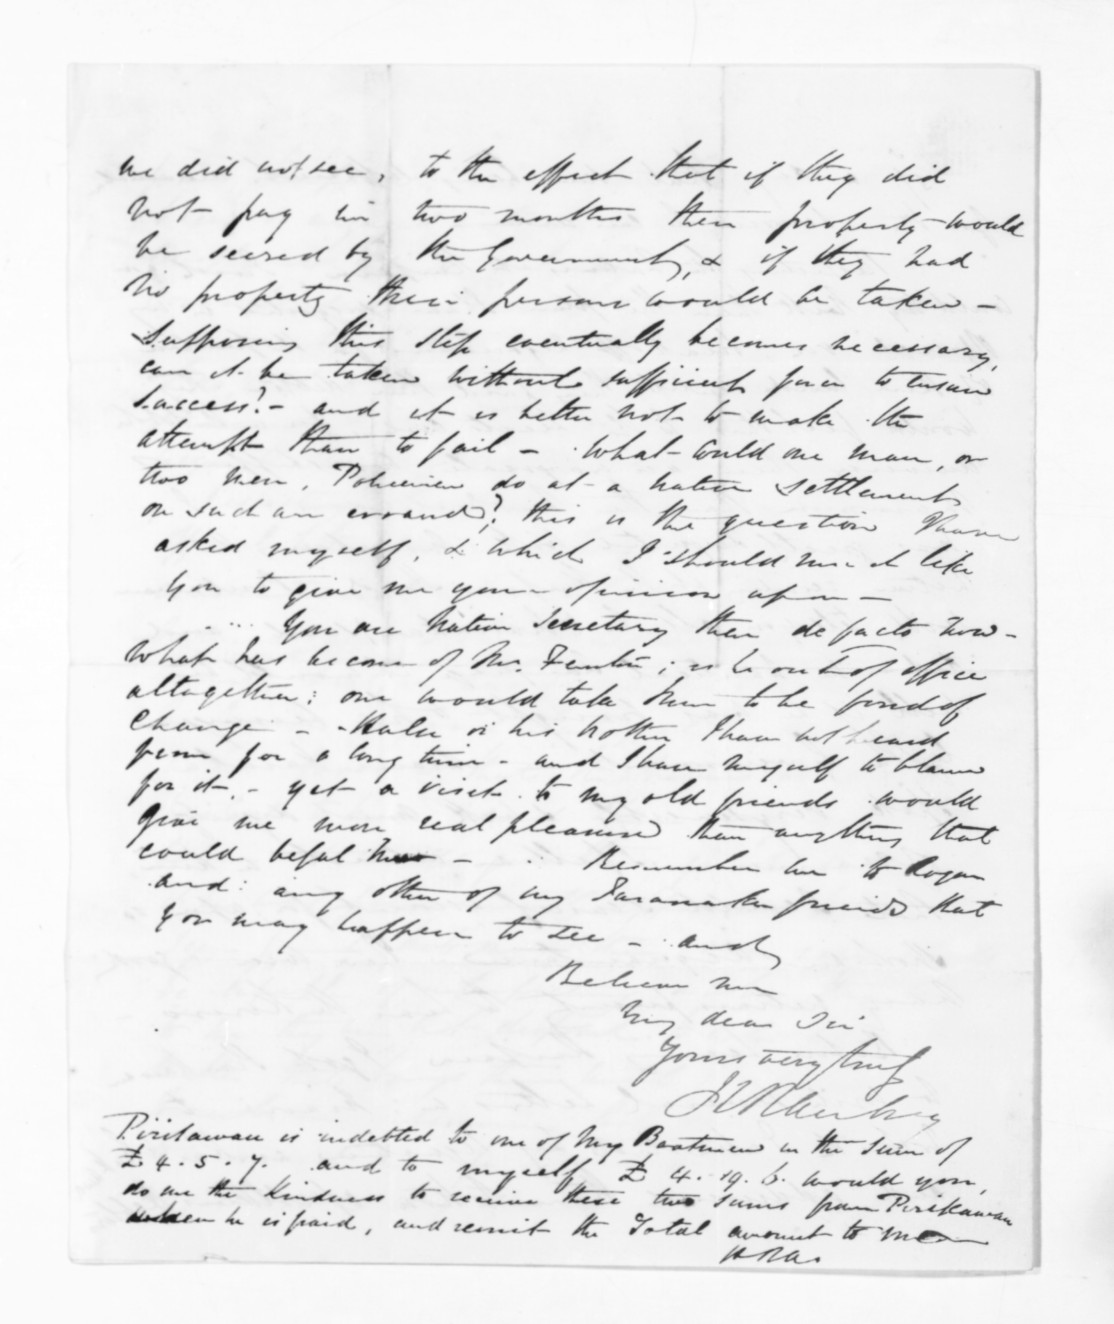 we did not see, to the effect that if they did
not pay in two months their property would
be seized by the Government, & if they had
no property their persons would be taken –
Supposing this step eventually becomes necessary,
can it be taken without sufficient force to ensure
success? – and it is better not to make the
attempt than to fail – What could one man, or
two men, Policemen do at a native settlement
on such an errand? this is the question I have
asked myself, & which I should much like
you to give me your opinion upon –
You are Native Secretary then de facto now –
What has become of Mr. ; is he out of office
altogether: one would take him to be fond of
change – Halse or his brother I have not heard
from for a long time – and I have myself to blame
for it, – yet a visit to my old friends would
give me more real pleasure than anything that
could befal me – Remember me to Rogan
and any other of my Taranaki friends that
you may happen to see – and
Believe me
My dear Sir
Yours very truly

Piritawau is indebted to one of my Boatmen in the sum of
£4.5.7. and to myself £4.19.6. would you,
do me the kindness to receive these two sums from Pirikawau
when he is paid, and remit the Total amount to me